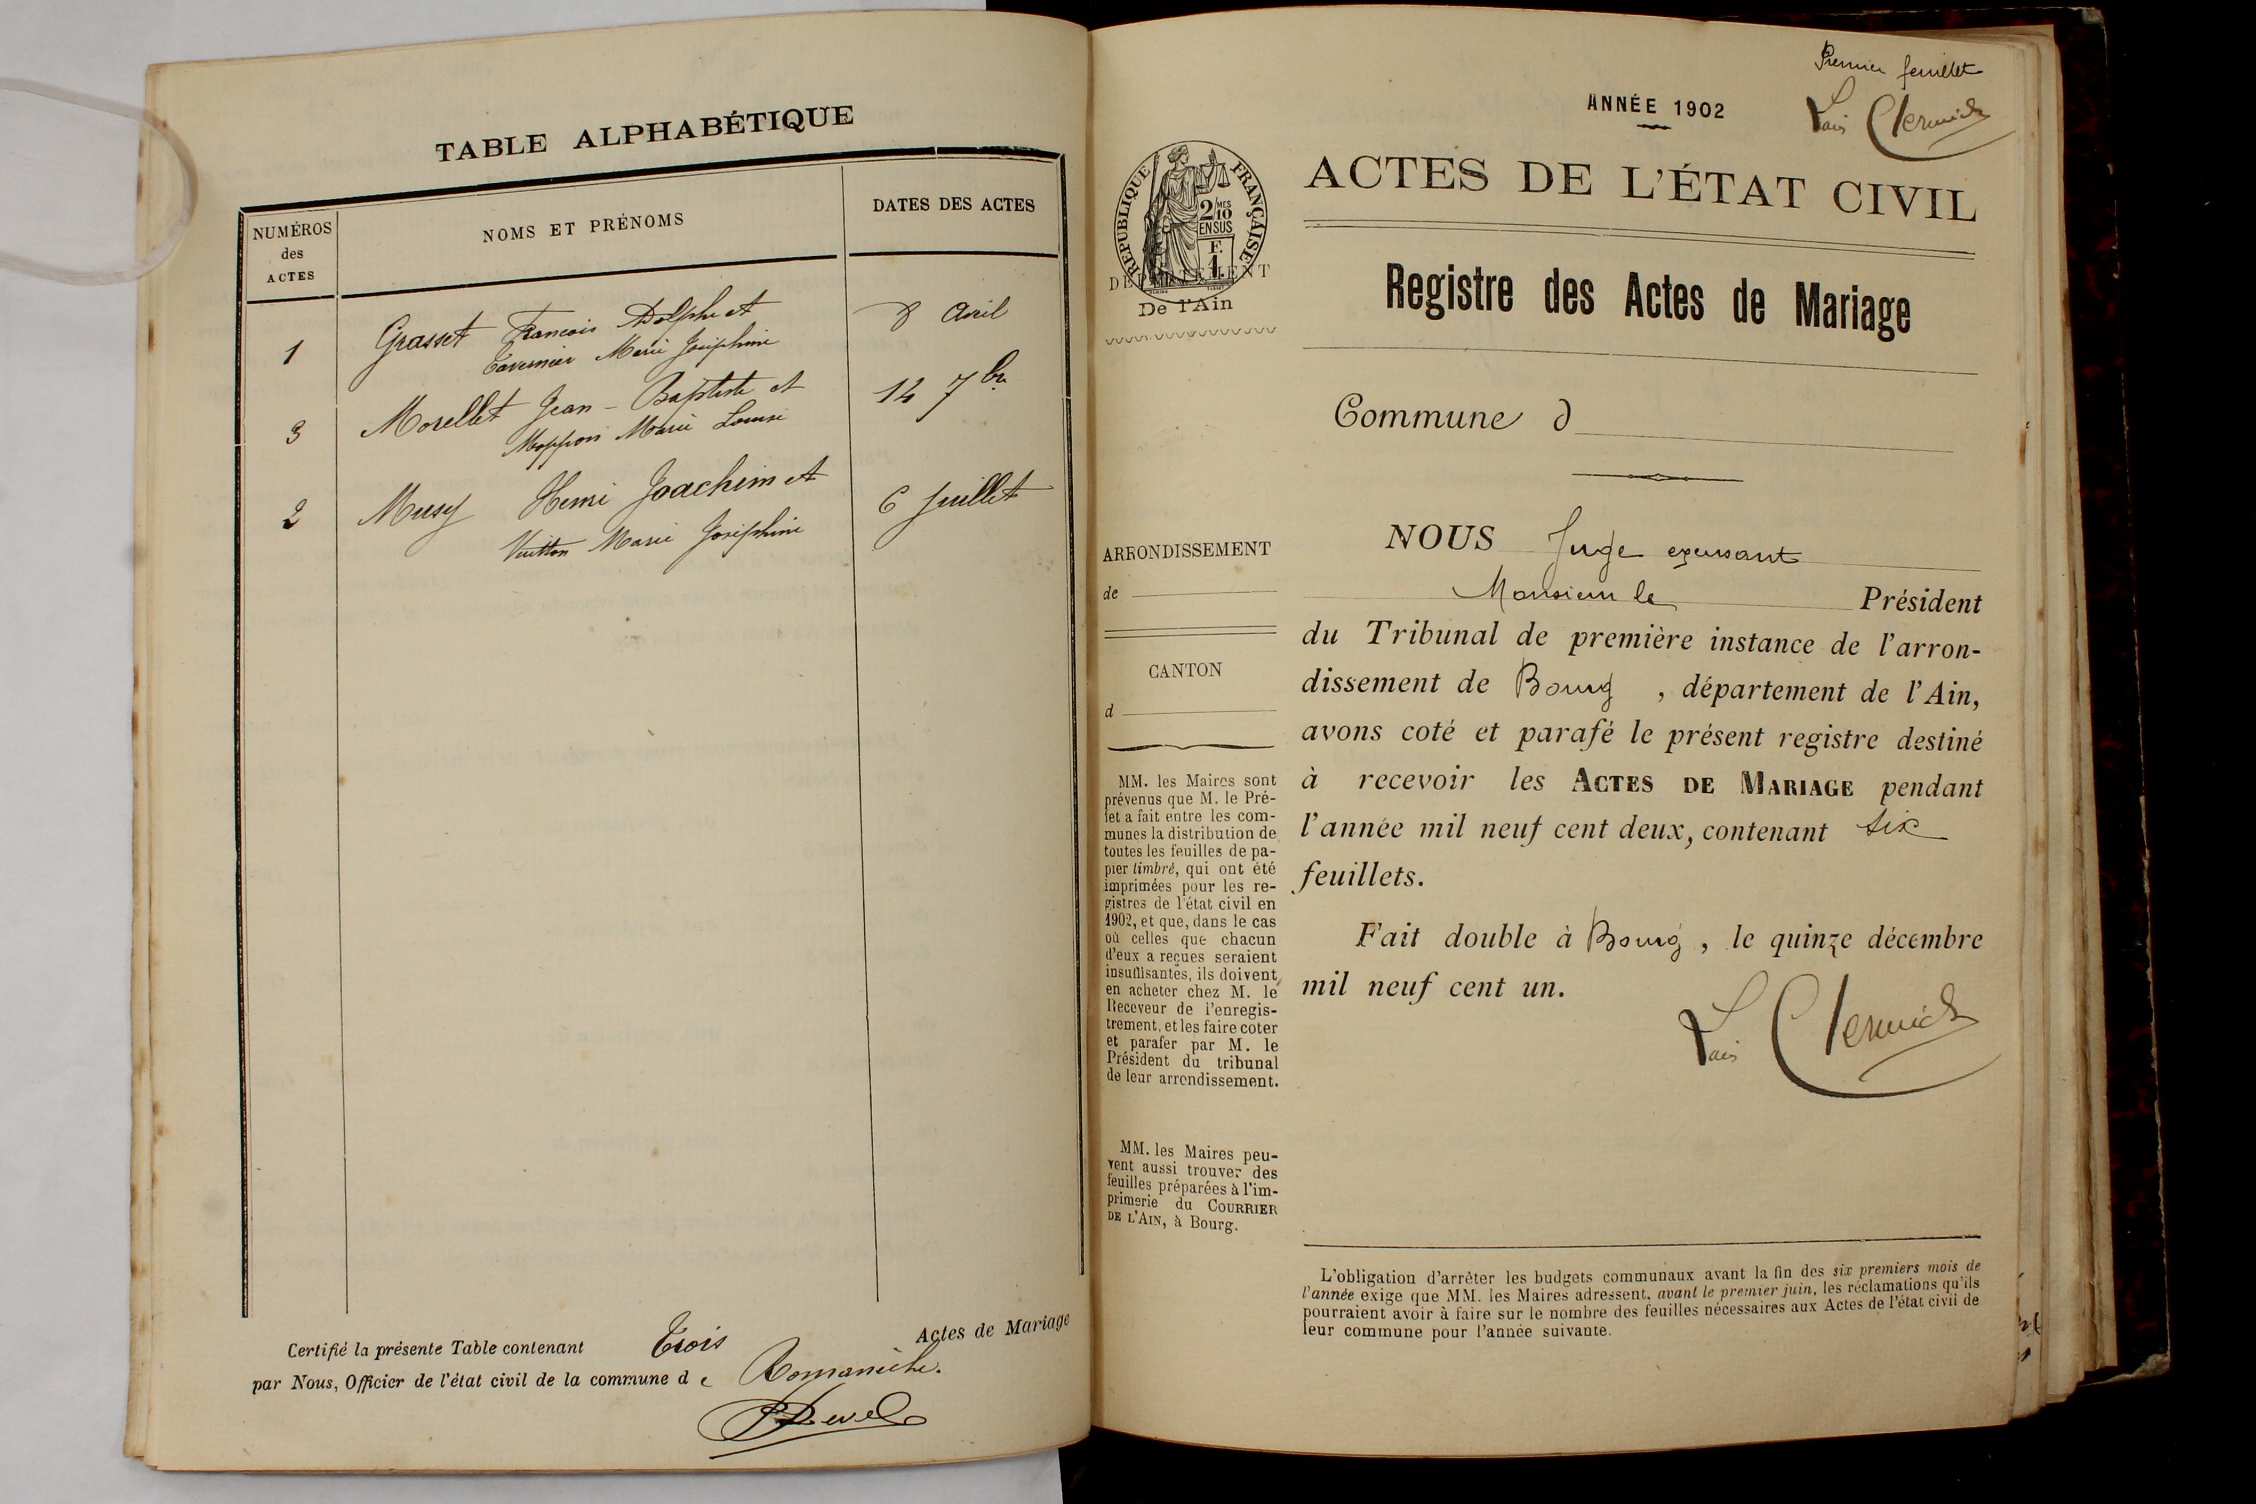 TABLE ALPHABÉTIQUE
NUMÉROS
des
ACTES
NOMS ET PRÉNOMS
DATES DES ACTES
1 Grasset François Adolphe et 8 Avril
Tavernier Marie Joséphine
3 Morellet Jean-Baptiste et 14 7bre
Marie Louise
2 Musy Henri Joachim et 6 Juillet
Vuitton Marie Joséphine
Certifié la présente Table contenant Trois Actes de Mariage
par Nous, Officier de l'état civil de la commune de Romanèche.
Premier feuillet
ANNÉE 1902
ACTES DE L'ÉTAT CIVIL
RÉPUBLIQUE FRANÇAISE
2/10 MES
EN SUS
F.
1
DÉPARTEMENT
De l'Ain
Registre des Actes de Mariage
Commune d
NOUS Juge exerçant
Monsieur le Président
du Tribunal de première instance de l'arron-
dissement de Bourg, département de l'Ain,
avons coté et parafé le présent registre destiné
à recevoir les ACTES DE MARIAGE pendant
l'année mil neuf cent deux, contenant six
feuillets.
Fait double à Bourg, le quinze décembre
mil neuf cent un.
ARRONDISSEMENT
de
CANTON
d
MM. les Maires sont
prévenus que M. le Pré-
fet a fait entre les com-
munes la distribution de
toutes les feuilles de pa-
pier timbré, qui ont été
imprimées pour les re-
gistres de l'état civil en
1902, et que, dans le cas
où celles que chacun
d'eux a reçues seraient
insuffisantes, ils doivent
en acheter chez M. le
Receveur de l'enregis-
trement, et les faire coter
et parafer par M. le
Président du tribunal
de leur arrondissement.
MM. les Maires peu-
vent aussi trouver des
feuilles préparées à l'im-
primerie du COURRIER
DE L'AIN, à Bourg.
L'obligation d'arrêter les budgets communaux avant la fin des six premiers mois de
l'année exige que MM. les Maires adressent, avant le premier juin, les réclamations qu'ils
pourraient avoir à faire sur le nombre des feuilles nécessaires aux Actes de l'état civil de
leur commune pour l'année suivante.